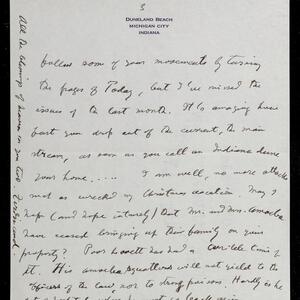 3
DUNELAND BEACH
MICHIGAN CITY
INDIANA
follow some of your movements by turning
the pages of Today, but I've missed the
issues of the last month. It's amazing how
fast you drop out of the current, the main
stream, as soon as you call an Indiana dune
your home..... I am well, no more attacks
such as wrecked my Christmas vacation. May I
hope (and hope intensely) that Mr. and Mrs. Amoeba
have ceased bringing up their family on your
property? Poor Lovett has had a terrible time of
it. His amoeba squatters will not yield to the
officers of the law, nor to drug poisons. Hardly is he
All the blessings of heaven on you two